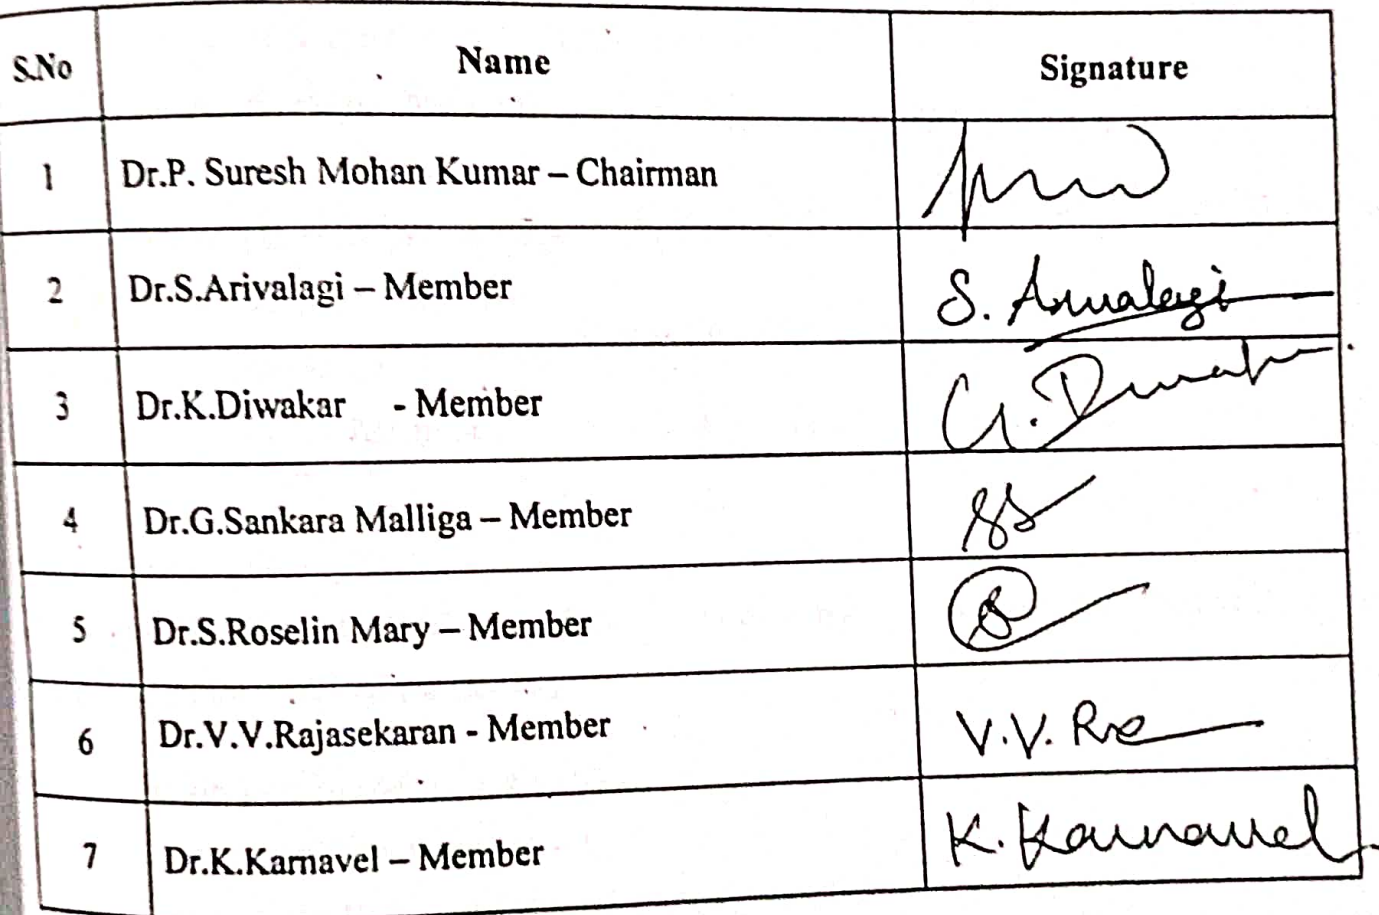 S.No Name Signature
1 Dr.P. Suresh Mohan Kumar – Chairman
2 Dr.S.Arivalagi – Member S. Arivalagi
3 Dr.K.Diwakar - Member
4 Dr.G.Sankara Malliga – Member
5 Dr.S.Roselin Mary – Member
6 Dr.V.V.Rajasekaran - Member V.V.
7 Dr.K.Karnavel – Member K. Karnavel